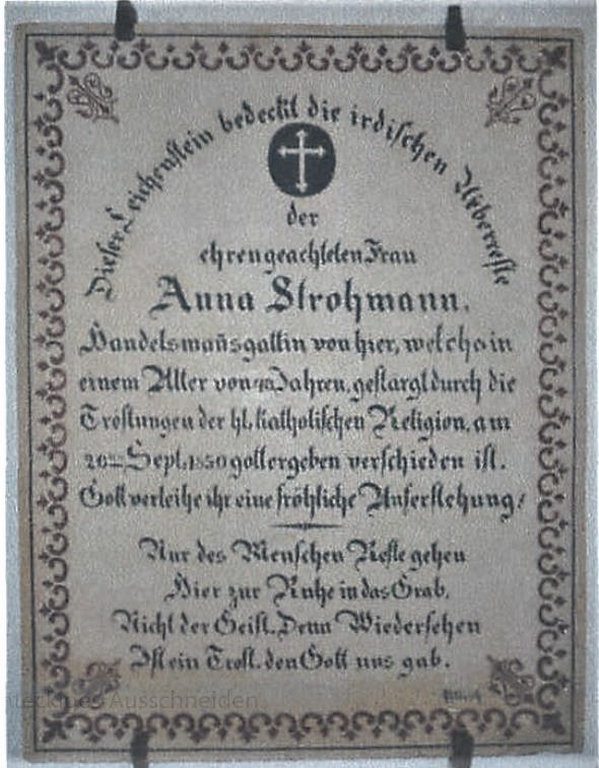 Dieser Leichenstein bedeckt die irdischen Ueberreste
der
ehrengeachteten Frau
Anna Strohmann,
Handelsmañsgattin von hier, welche in
einem Alter von Jahren, gestärgt durch die
Tröstungen der hl. katholischen Religion, am
20ten Sept. 1850 gottergeben verschieden ist.
Gott verleihe ihr eine fröhliche Auferstehung!
Nur des Menschen Reste gehen
Hier zur Ruhe in das Grab,
Nicht der Geist. Denn Wiedersehen
Ist ein Trost, den Gott uns gab.
Ausschneiden